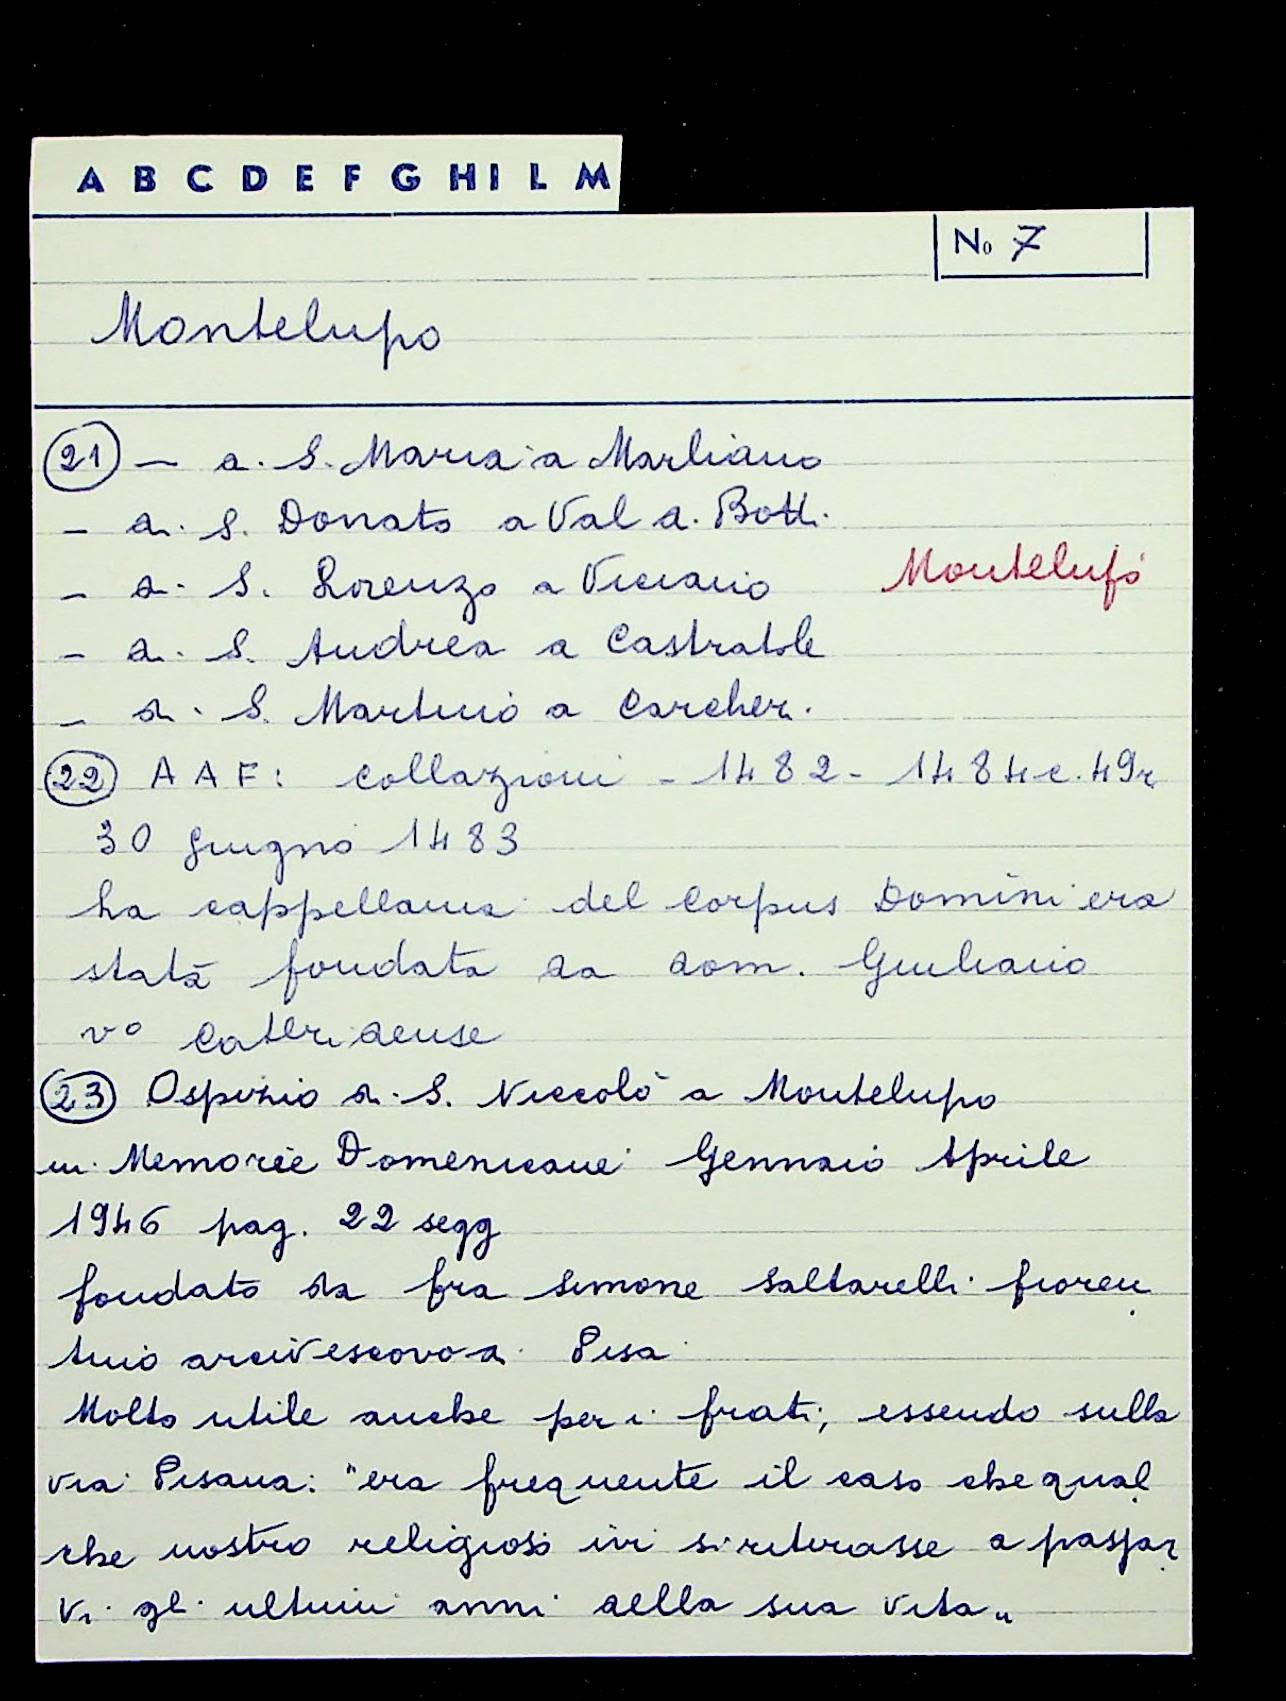 A B C D E F G H I L M
No 7
Montelupo
21 – di S. Maria a Marliano
– di S. Donato a Val di Bott.
– di S. Lorenzo a Viciano Montelupo
– di S. Andrea a Castratole
– di S. Martino a Carcher.
22 AAF: collazioni - 1482 - 1484 c. 49r
30 giugno 1483
La cappellania del Corpus Domini era
stata fondata da dom. Giuliano
vo
23 Ospizio di S. Niccolò a Montelupo
in Memorie Domenicane Gennaio Aprile
1946 pag. 22 segg
fondato da fra Simone Saltarelli fioren
tino arcivescovo di Pisa
Molto utile anche per i frati, essendo sulla
via Pisana: "era frequente il caso che qual
che nostro religioso ivi si ritirasse a passar
vi gli ultimi anni della sua vita„